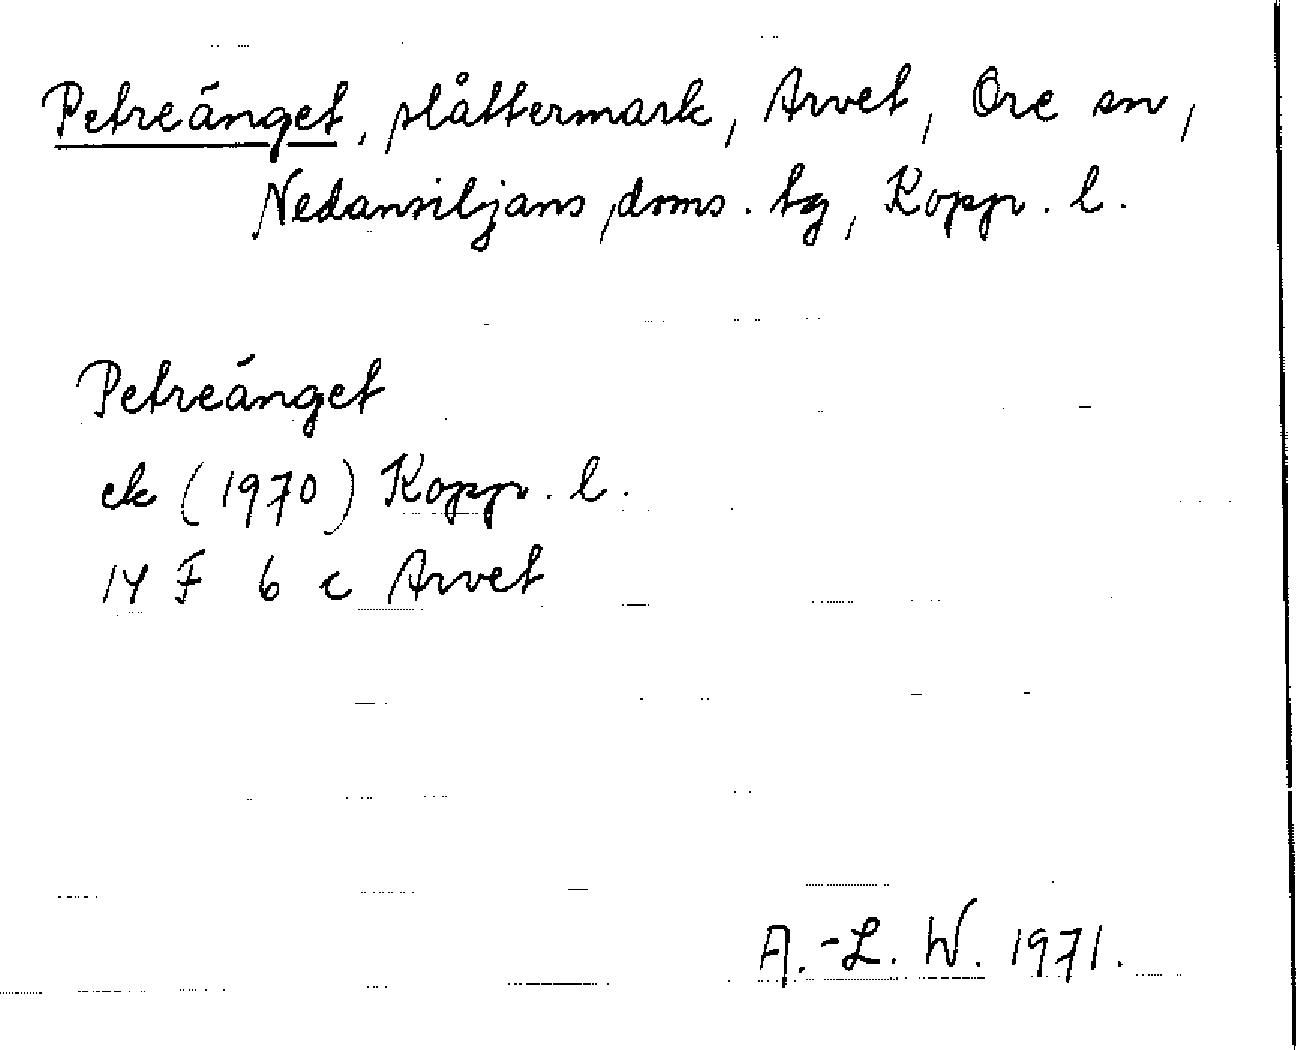 Petreänget, slåttermark, Arvet, Ore sn,
Nedansiljans doms. tg, Kopp. l.
Petreänget
ek (1970) Kopp. l.
14 F 6 c Arvet
A.-L. W. 1971.